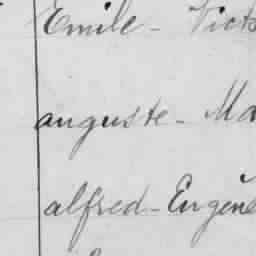 Emile - Vict
auguste - Ma
alfred - Eugène